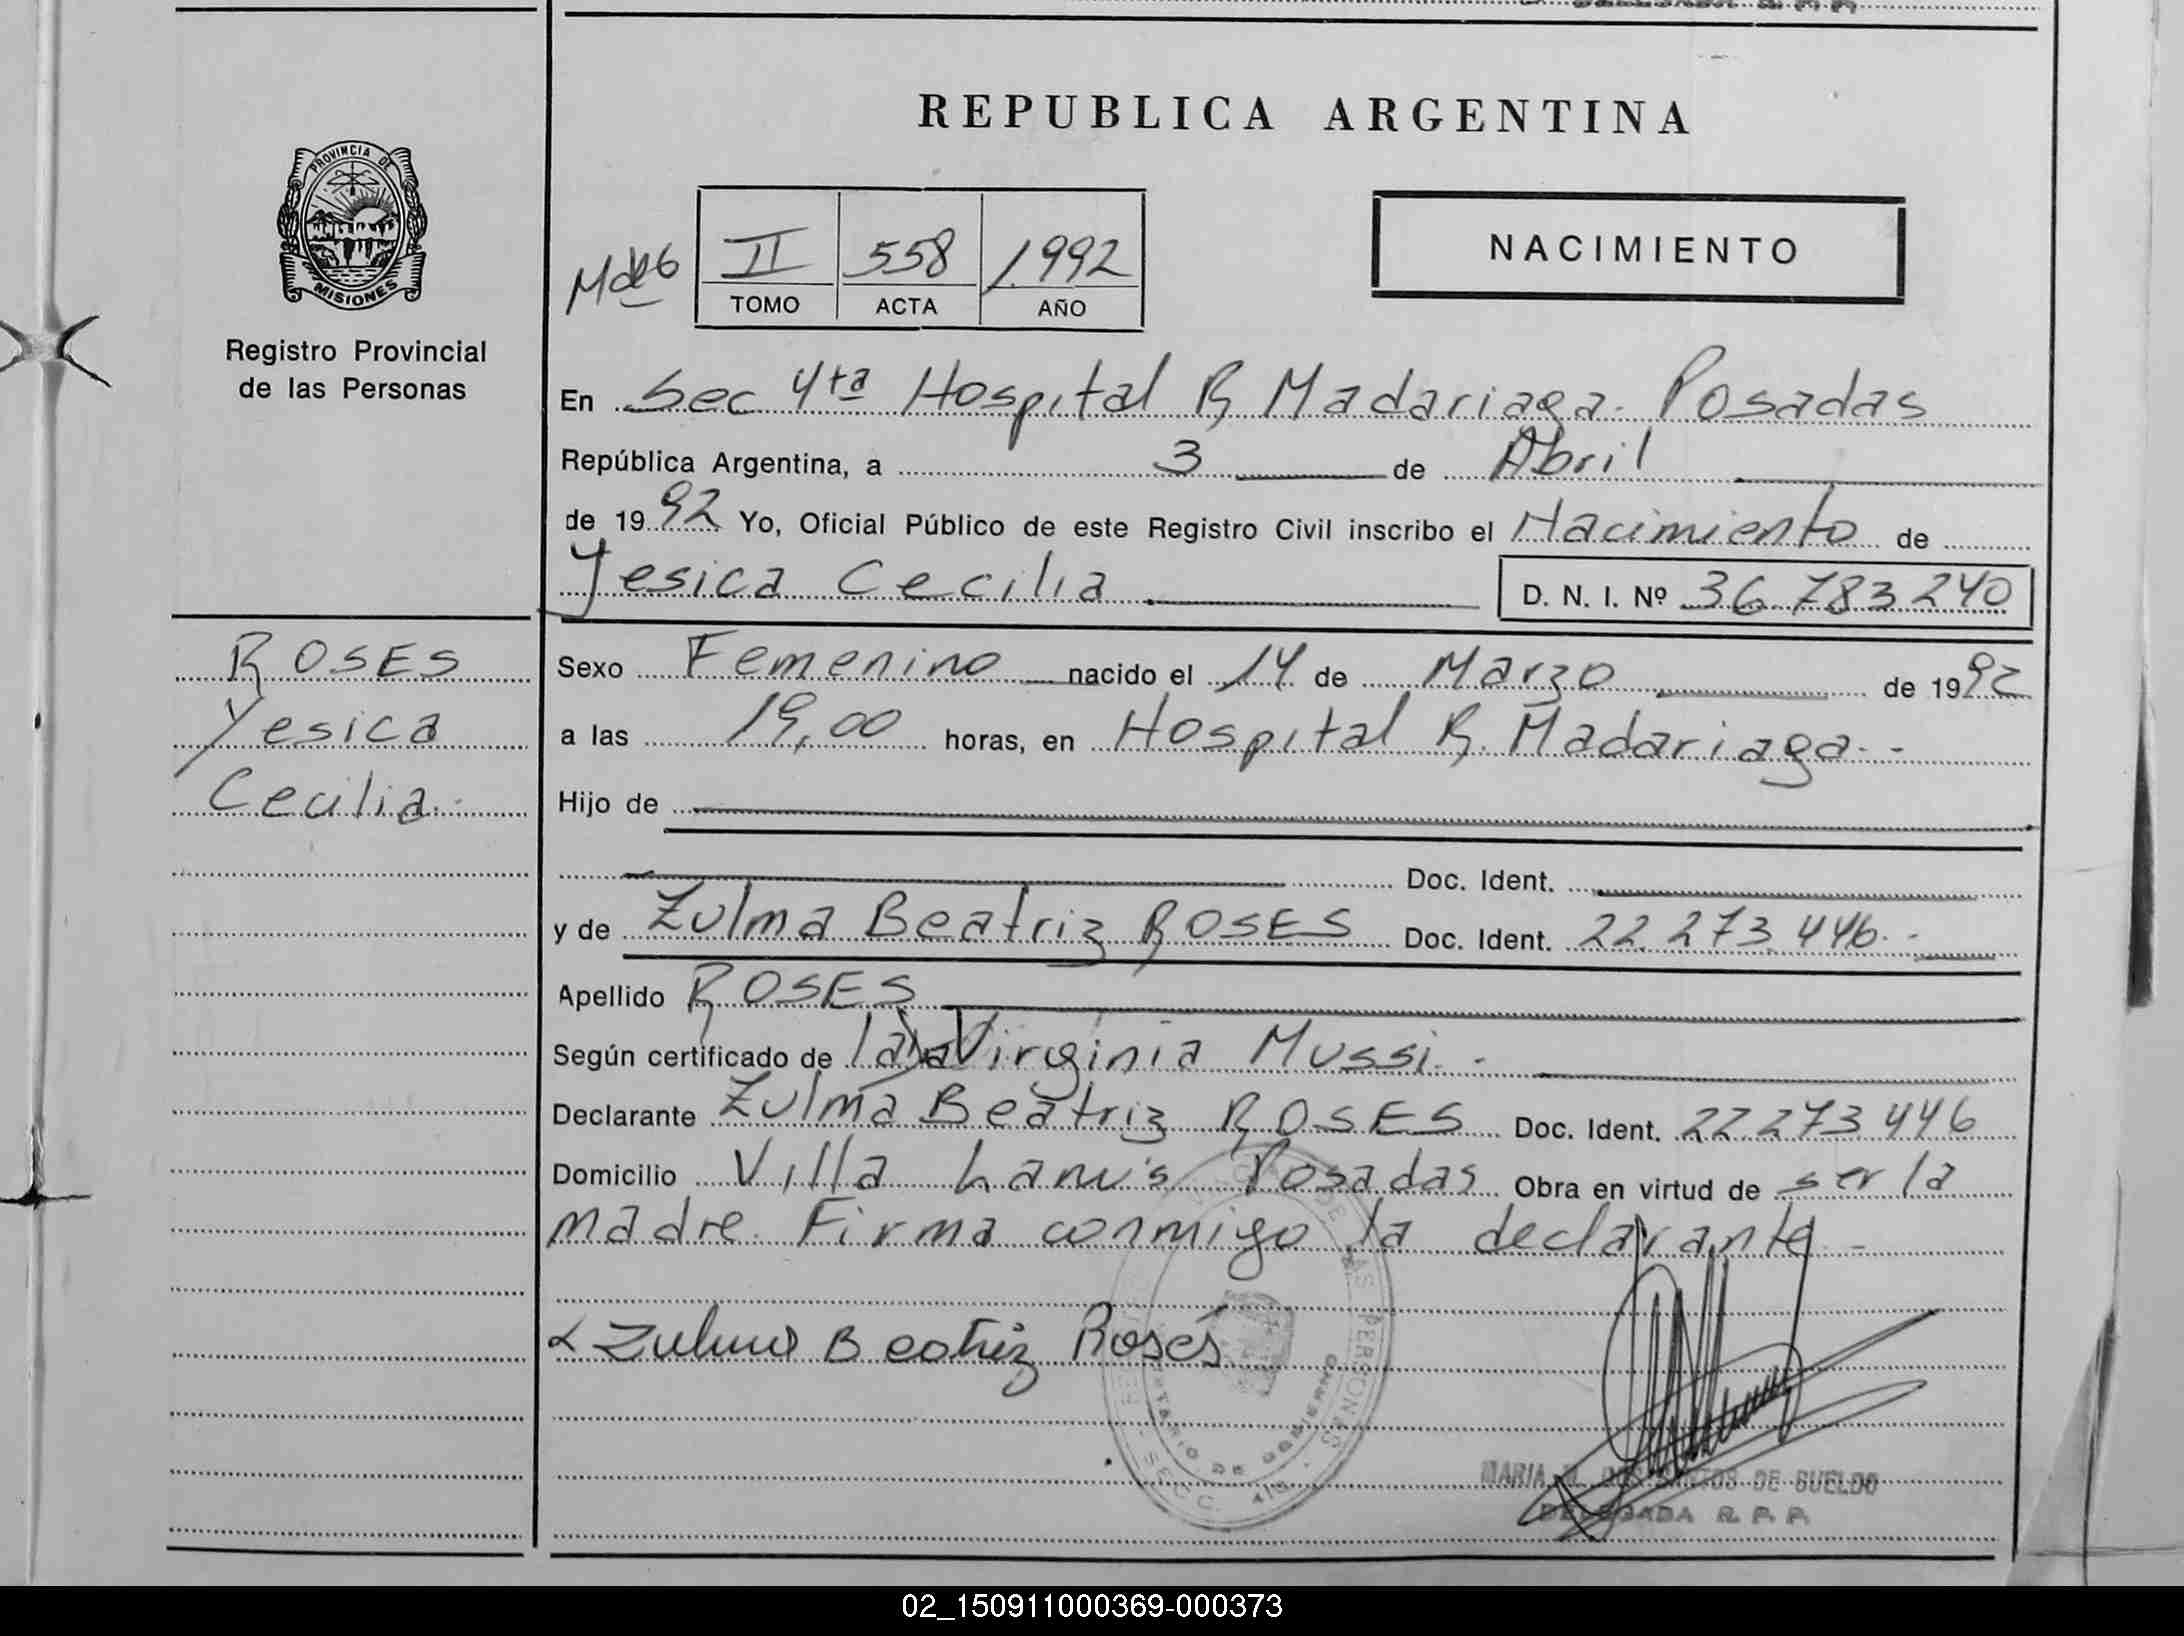 REPUBLICA ARGENTINA
PROVINCIA DE
MISIONES
Registro Provincial
de las Personas
II 558 1992
TOMO ACTA AÑO
NACIMIENTO
En Sec 4ta Hospital R Madariaga. Posadas
República Argentina, a 3 de Abril
de 1992 Yo, Oficial Público de este Registro Civil inscribo el Nacimiento de
Yesica Cecilia D. N. I. Nº 36.783.240
ROSES
Yesica
Cecilia.-
Sexo Femenino nacido el 14 de Marzo de 1992
a las 19,00 horas, en Hospital R. Madariaga.-
Hijo de
Doc. Ident.
y de Zulma Beatriz ROSES Doc. Ident. 22.273.446.-
Apellido ROSES
Según certificado de Virginia Mussi.-
Declarante Zulma Beatriz ROSES Doc. Ident. 22.273.446
Domicilio Villa Lanus Posadas Obra en virtud de ser la
madre. Firma conmigo la declarante.-
Zulma Beatriz Rosés
MARIA DE SUELDO
DELEGADA R. P. P.
02_150911000369-000373